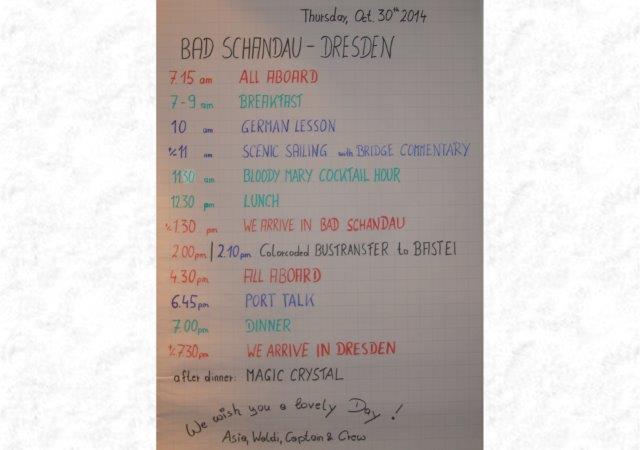 Thursday, Oct. 30th 2014
BAD SCHANDAU - DRESDEN
7.15 am ALL ABOARD
7-9 am BREAKFAST
10 am GERMAN LESSON
½11 am SCENIC SAILING with BRIDGE COMMENTARY
11.30 am BLOODY MARY COCKTAIL HOUR
12.30 pm LUNCH
½1.30 pm WE ARRIVE IN BAD SCHANDAU
2.00pm | 2.10pm Colorcoded BUSTRANSFER to BASTEI
4.30pm ALL ABOARD
6.45pm PORT TALK
7.00pm DINNER
½7.30pm WE ARRIVE IN DRESDEN
after dinner: MAGIC CRYSTAL
We wish you a lovely Day!
Asia, Waldi, Captain & Crew